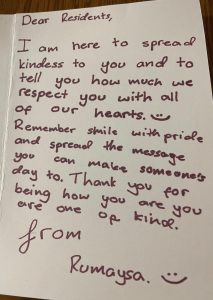 Dear Residents,
I am here to spread
kindess to you and to
tell you how much we
respect you with all
of our hearts.
Remember smile with pride
and spread the message
you can make someones
day to. Thank you for
being how you are you
are one of kind.
from
Rumaysa.